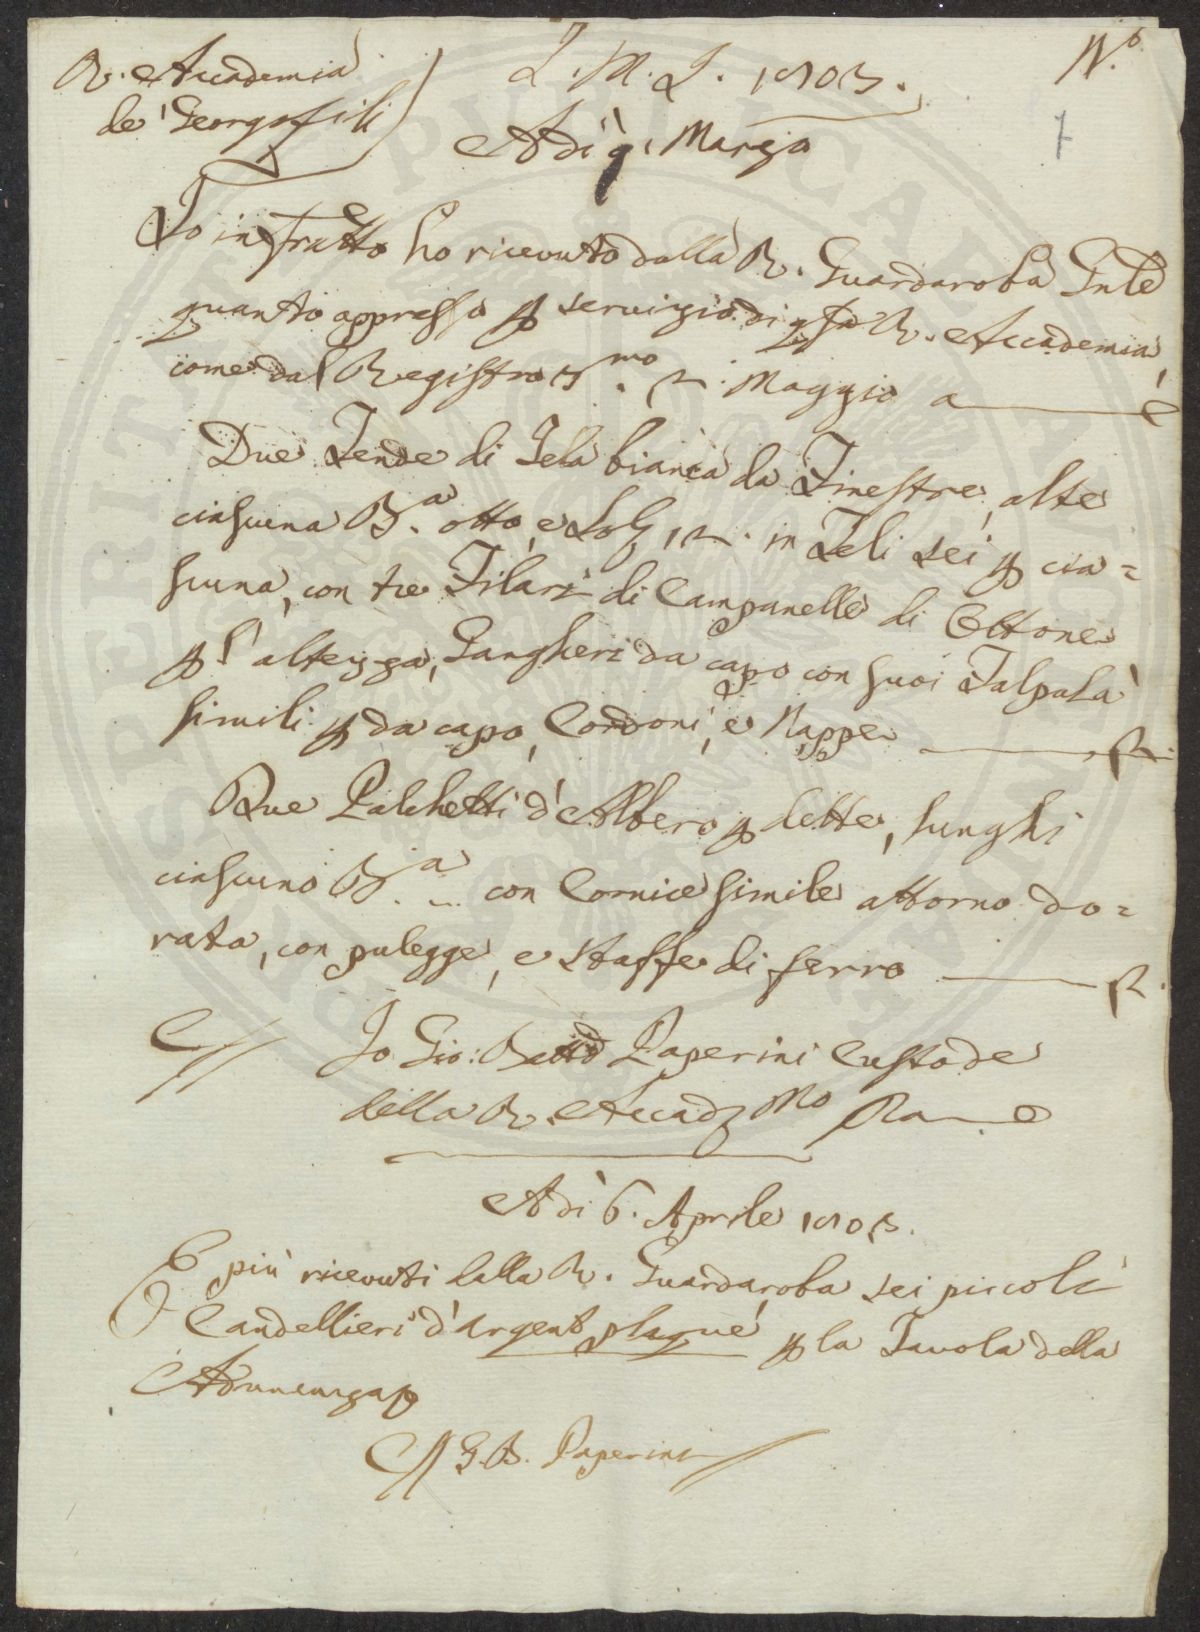 R. Accademia
de' Georgofili
I. M. I. 1803.
N.°
7
Adì 9. Marzo
Io infratto ho ricevuto dalla R. Guardaroba Gnle
quanto appresso p servizio di qsta R. Accademia,
come dal Registro mo. Maggio a
Due Tende di Tela bianca da Finestre, alte
ciascuna B.a otto, e Soldi 12. in Teli sei p cia=
scuna, con tre Filari di Campanelle di Ottone
p l'altezza, Gangheri da capo con suoi Falpalà
simili p da capo, Cordoni, e Nappe 2.
Due Palchetti d'Albero p dette, lunghi
ciascuno B.a ... con Cornice simile attorno do=
rata, con pulegge, e staffe di ferro 2.
Io Gio: Batta Paperini Custode
della R. Accad. Mo Pa
Adì 6. Aprile 1803.
E più ricevuti dalla R. Guardaroba sei piccoli
Candellieri d'argent plaqué p la Tavola della
Adunanza
G. B. Paperini
PROSPERITATI PUBLICAE AUGENDAE